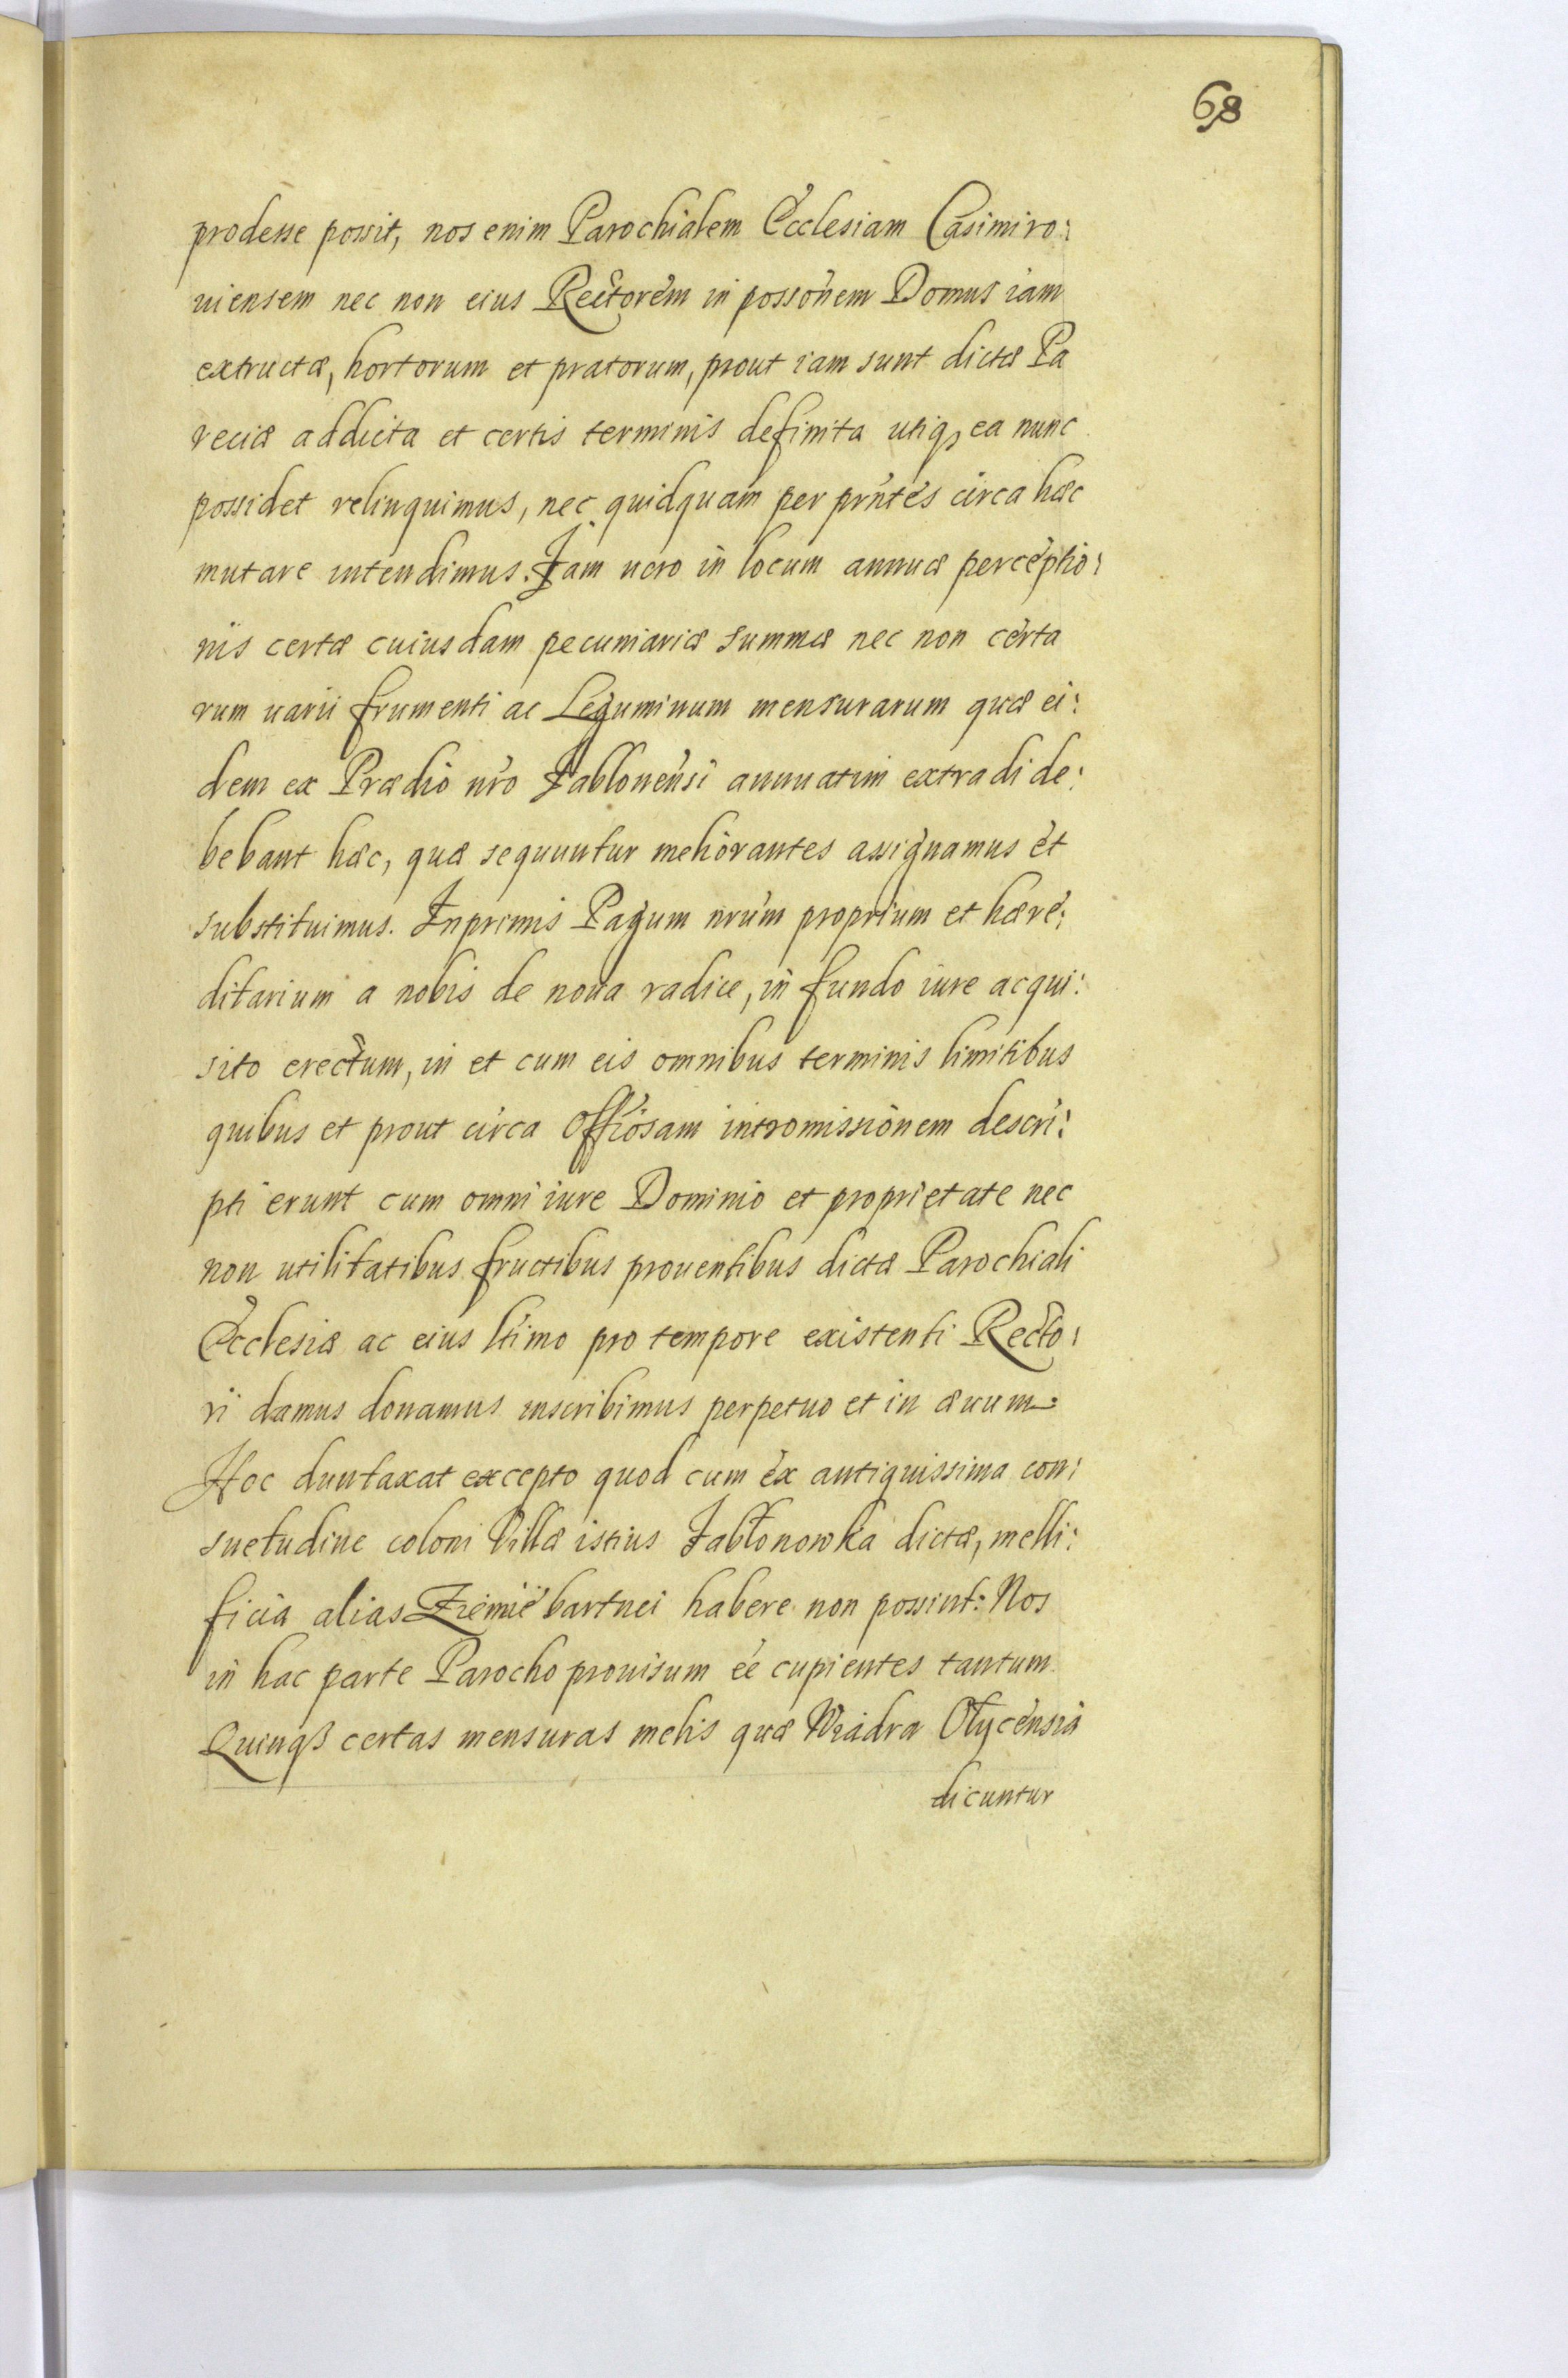 68
prodesse possit, nos enim Parochialem Ecclesiam Casimiro:
uiensem nec non eius Rectorem in possonem Domus iam
extructæ, hortorum et pratorum, prout iam sunt dictæ Pa
reciæ addicta et certis terminis definita utiq, ea nunc
possidet relinquimus, nec quidquam per pntes circa hæc
mutare intendimus. Iam uero in locum annuæ perceptio:
nis certæ cuiusdam pecuniariæ summæ nec non certa
rum uarii frumenti ac Leguminum mensurarum quæ ei:
dem ex Prædio nro Jablonensi annuatim extradi de:
bebant hæc, quæ sequuntur meliorantes assignamus et
substituimus. Inprimis Pagum nrum proprium et hære:
ditarium a nobis de noua radice, in fundo iure acqui:
sito erectum, in et cum eis omnibus terminis limitibus
quibus et prout circa Offiosam intromissionem descri:
pti erunt cum omni iure Dominio et proprietate nec
non utilitatibus fructibus prouentibus dictæ Parochiali
Ecclesiæ ac eius ltimo pro tempore existenti Recto:
ri damus donamus inscribimus perpetuo et in æuum
Hoc duntaxat excepto quod cum ex antiquissima con:
suetudine coloni Villæ istius Jabłonowka dictæ, melli:
ficia alias Ziemie bartnei habere non possint: Nos
in hac parte Parocho prouisum ee cupientes tantum
Quinqß certas mensuras melis quæ Wiadra Ołycensia
dicuntur